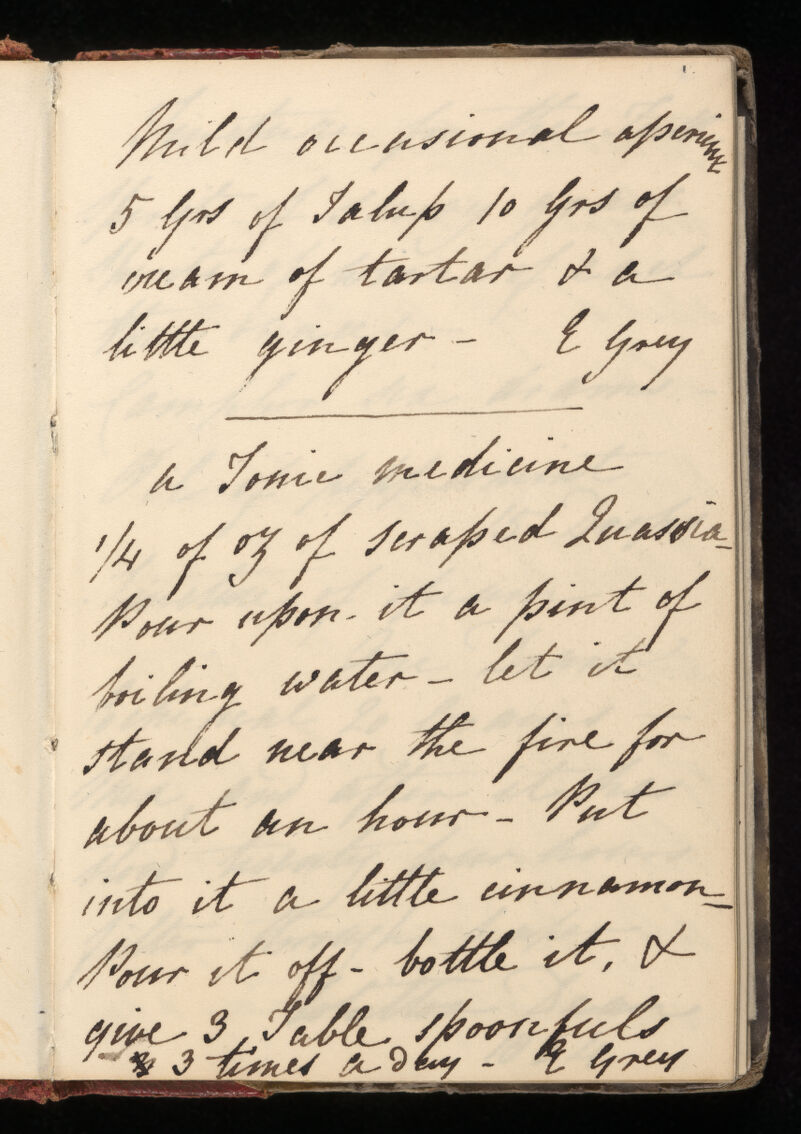 Mild occasional aperient
5 Grs of Jalup 10 Grs of
cream of tartar & a
little ginger - E Grey
a Tonic medicine
1/4 of oz of scraped Quassia-
Pour upon - it a pint of
boiling water - let it
stand near the fire for
about an hour - Put
into it a little cinnamon-
Pour it off - bottle it, &
give 3 Table spoonfuls
3 times a day - E Grey